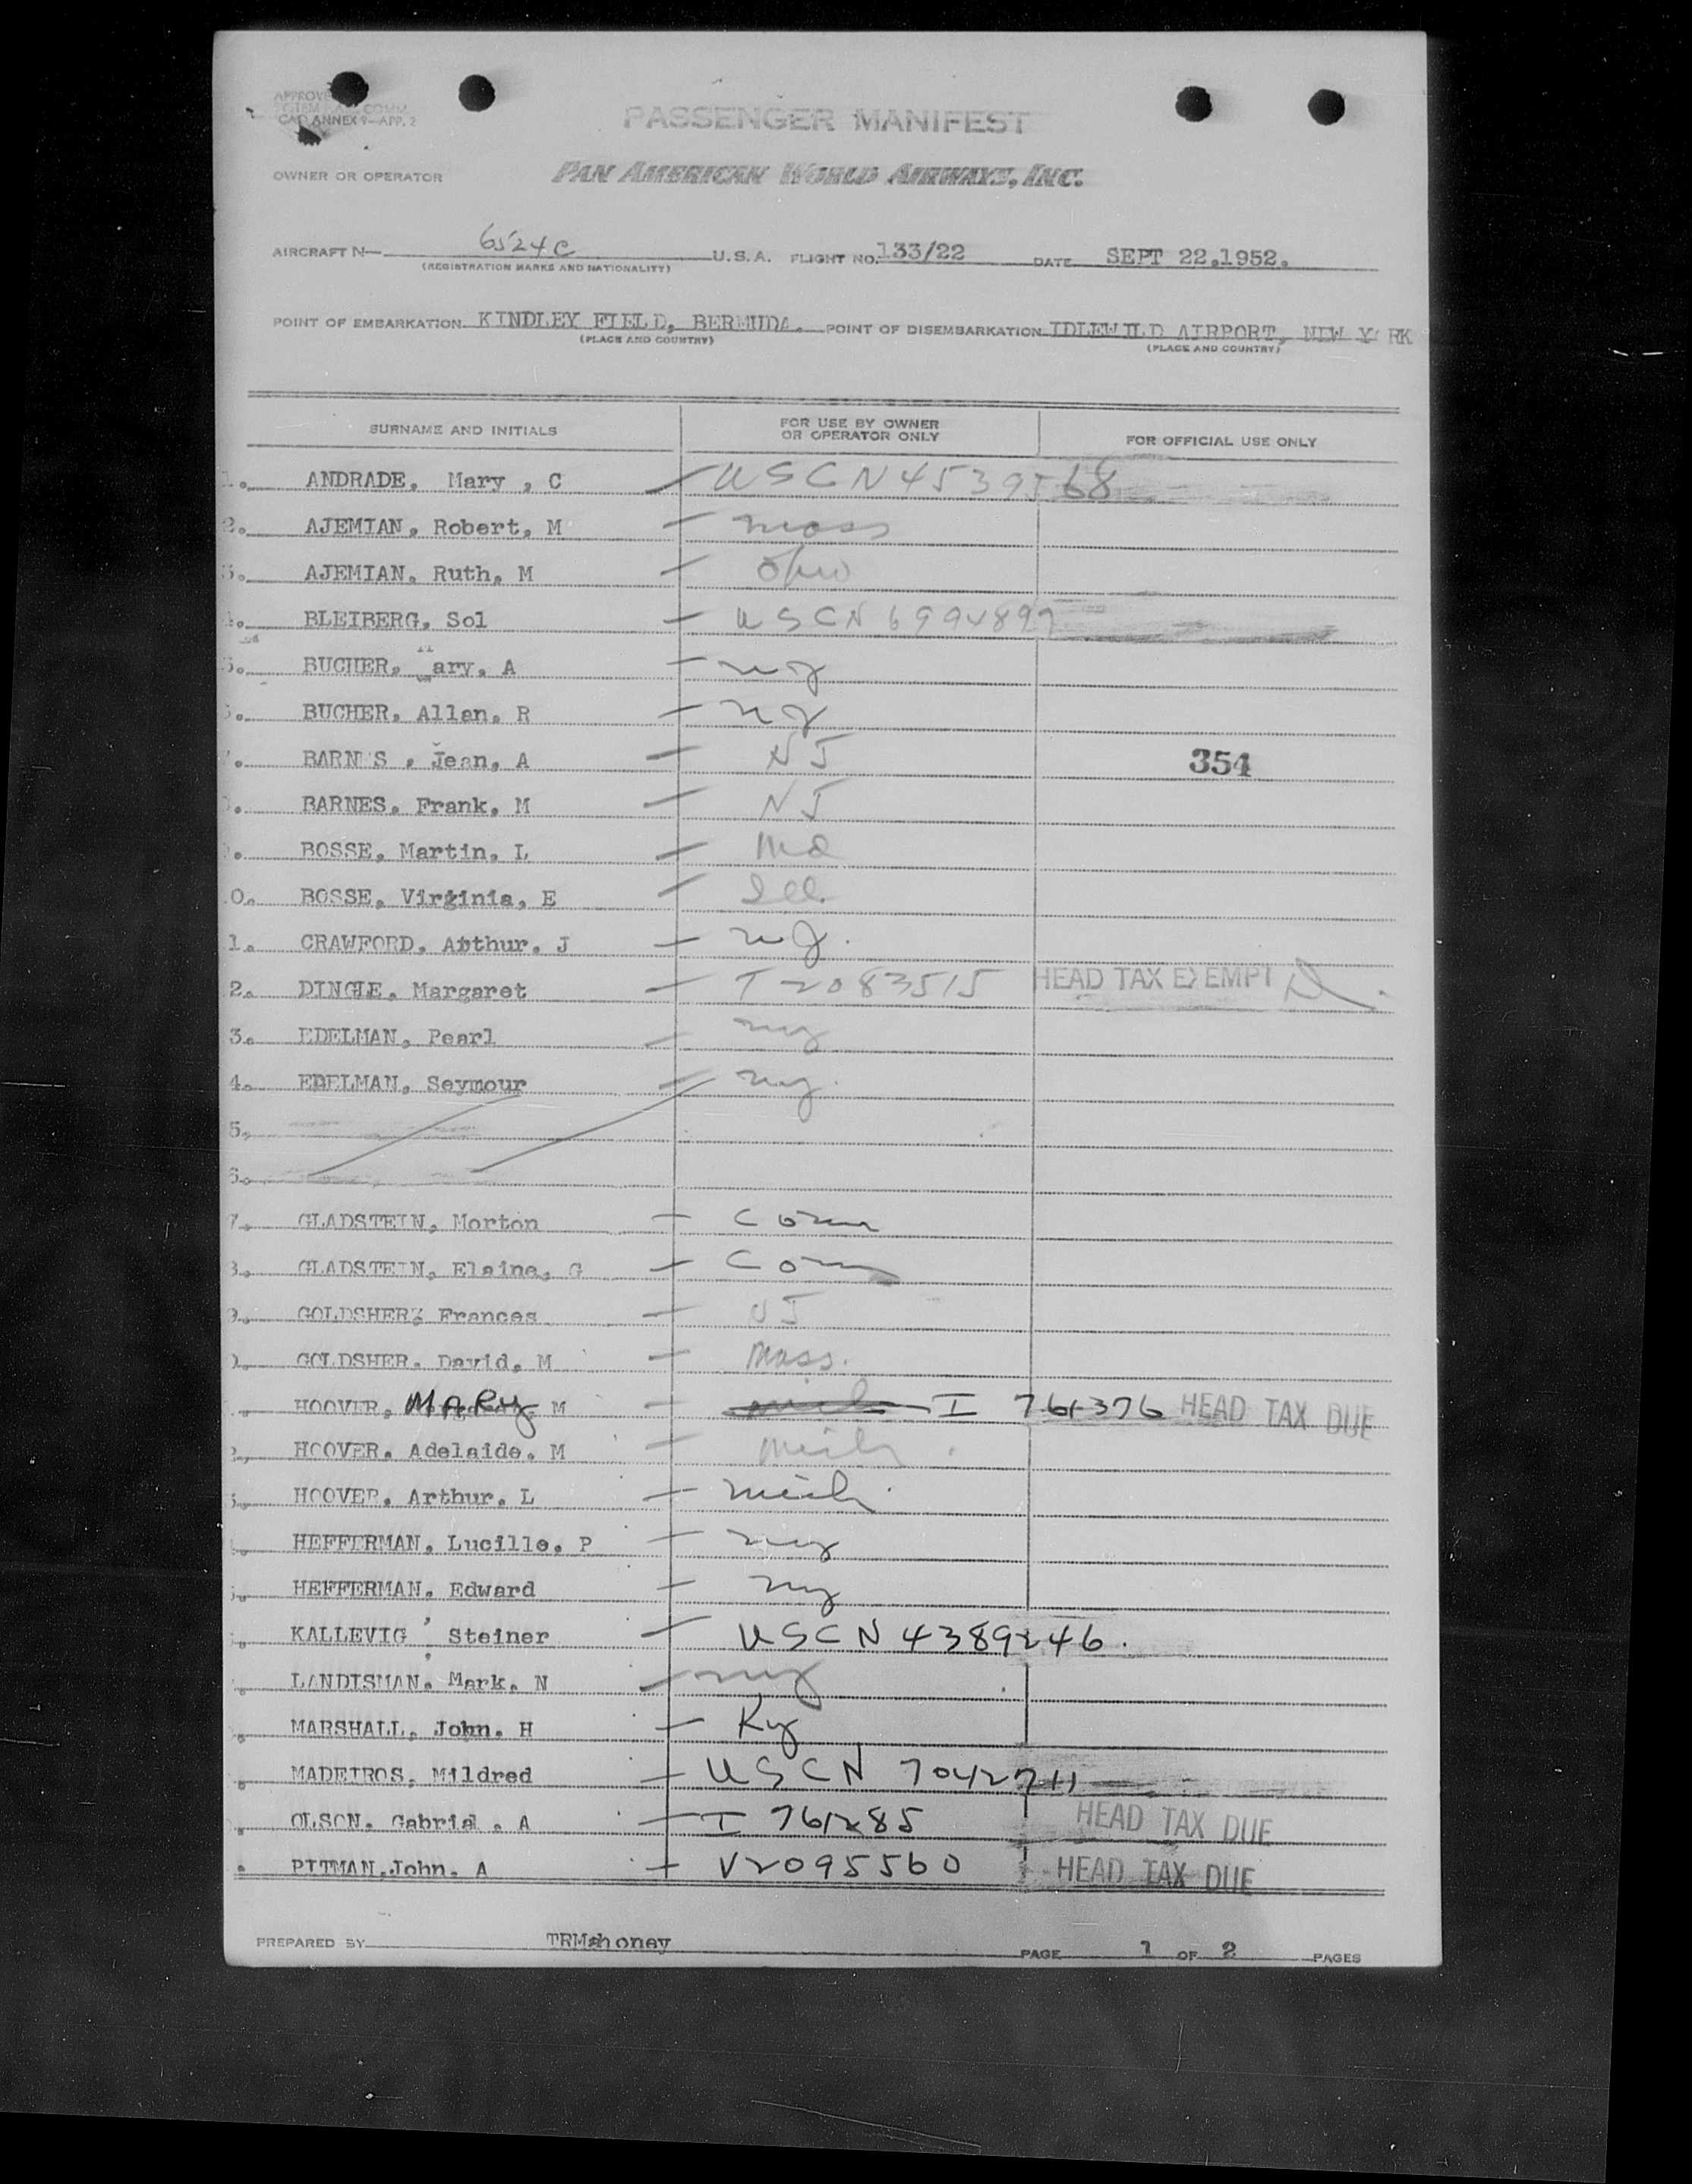 CAO ANNEX 9—APP. 2
PASSENGER MANIFEST
OWNER OR OPERATOR PAN AMERICAN WORLD AIRWAYS, INC.
AIRCRAFT N— 6524C U.S.A. FLIGHT NO. 133/22 DATE SEPT 22.1952.
(REGISTRATION MARKS AND NATIONALITY)
POINT OF EMBARKATION KINDLEY FIELD, BERMUDA. POINT OF DISEMBARKATION IDLEWILD AIRPORT, NEW Y RK
(PLACE AND COUNTRY) (PLACE AND COUNTRY)
SURNAME AND INITIALS FOR USE BY OWNER OR OPERATOR ONLY FOR OFFICIAL USE ONLY
1. ANDRADE, Mary , C USCN 4539568
2. AJEMIAN, Robert, M mass
3. AJEMIAN, Ruth, M Ohio
BLEIBERG, Sol USCN 6994897
BUCHER, Mary, A NJ
BUCHER, Allan, R NJ
BARN S , Jean, A NJ 354
BARNES, Frank, M NJ
BOSSE, Martin, L Md
0. BOSSE, Virginia, E Ill.
1. CRAWFORD, Arthur, J NJ.
2. DINGLE, Margaret T 2083515 HEAD TAX EXEMPT
3. EDELMAN, Pearl NY
4. EDELMAN, Seymour NY.
5.
6.
7. GLADSTEIN, Morton Conn
8. GLADSTEIN, Elaine, G Conn
9. GOLDSHER, Frances NJ
GOLDSHER, David, M Mass.
HOOVER, MARY M I 761376 HEAD TAX DUE
HOOVER, Adelaide, M Mich
HOOVER, Arthur, L Mich
HEFFERMAN, Lucille, P NY
HEFFERMAN, Edward NY
KALLEVIG ' Steiner USCN 4389246.
LANDISMAN, Mark, N NY
MARSHALL, John, H Ky
MADEIROS, Mildred USCN 7042711
OLSON, Gabriel , A I 761285 HEAD TAX DUE
PITMAN, John, A V2095560 HEAD TAX DUE
PREPARED BY TRMahoney PAGE 1 OF 2 PAGES